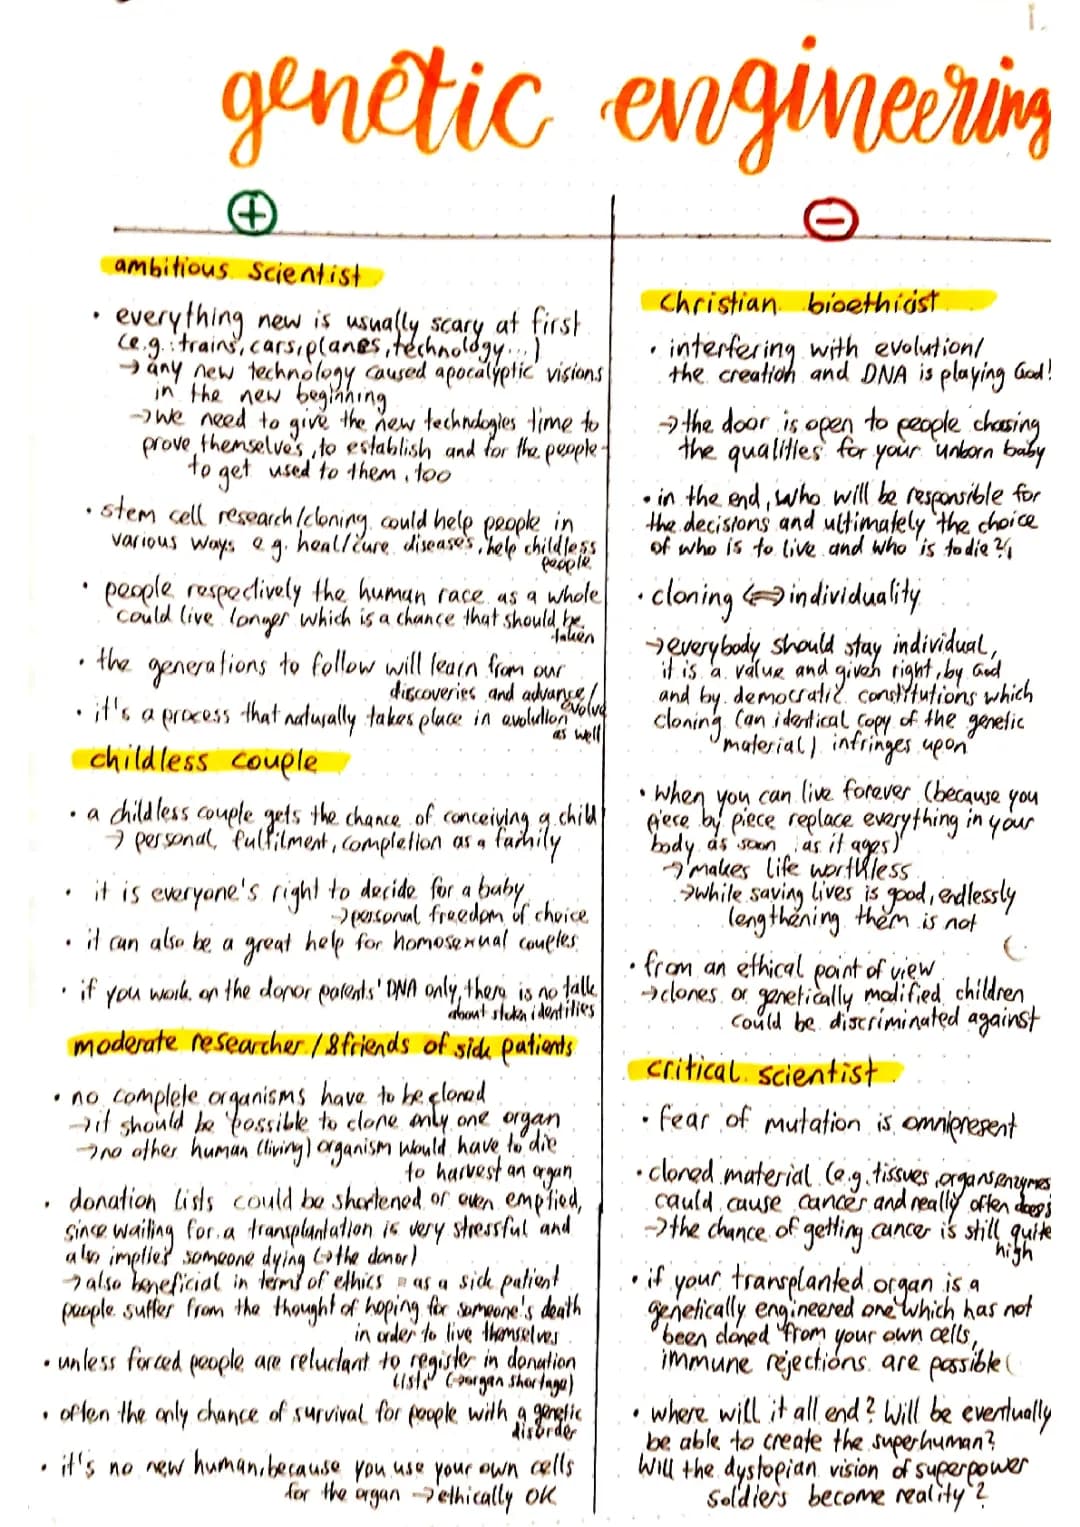 1.
genetic engineering
+
ambitious scientist
• everything new is usually scary at first
(e.g.: trains, cars, planes, technology...)
→ any new technology caused apocalyptic visions
in the new beginning
→ we need to give the new technologies time to
prove themselves, to establish and for the people
to get used to them, too
• stem cell research/cloning could help people in
various ways e.g. heal/cure diseases, help childless
people
• people respectively the human race as a whole
could live longer which is a chance that should be
taken
• the generations to follow will learn from our
discoveries and advance/
evolve
• it's a process that naturally takes place in evolution
as well
childless couple
• a childless couple gets the chance of conceiving a child
→ personal fulfilment, completion as a family
• it is everyone's right to decide for a baby
→ personal freedom of choice
• it can also be a great help for homosexual couples
• if you work on the donor parents' DNA only, there is no talk
about stolen identities
moderate researcher/&friends of sick patients
• no complete organisms have to be cloned
→ it should be possible to clone only one organ
→ no other human (living) organism would have to die
to harvest an organ
• donation lists could be shortened or even emptied,
since waiting for a transplantation is very stressful and
also implies someone dying (→ the donor)
→ also beneficial in terms of ethics as a sick patient
people suffer from the thought of hoping for someone's death
in order to live themselves
• unless forced people are reluctant to register in donation
lists (→ organ shortage)
• often the only chance of survival for people with a genetic
disorder
• it's no new human, because you use your own cells
for the organ → ethically OK
−
Christian bioethicist
• interfering with evolution/
the creation and DNA is playing God!
→ the door is open to people chosing
the qualities for your unborn baby
• in the end, who will be responsible for
the decisions and ultimately the choice
of who is to live and who is to die?
• cloning ⟺ individuality
→ everybody should stay individual,
it is a value and given right, by God
and by democratic constitutions which
cloning (an identical copy of the genetic
material) infringes upon
• when you can live forever (because you
piece by piece replace everything in your
body as soon as it ages)
→ makes life worthless
→ while saving lives is good, endlessly
lengthening them is not
• from an ethical point of view
→ clones or genetically modified children
could be discriminated against
critical scientist
• fear of mutation is omnipresent
• cloned material (e.g. tissues, organs enzymes
could cause cancer and really often does
→ the chance of getting cancer is still quite
high
• if your transplanted organ is a
genetically engineered one which has not
been cloned from your own cells,
immune rejections are possible
• where will it all end? Will be eventually
be able to create the superhuman?
Will the dystopian vision of superpower
soldiers become reality?